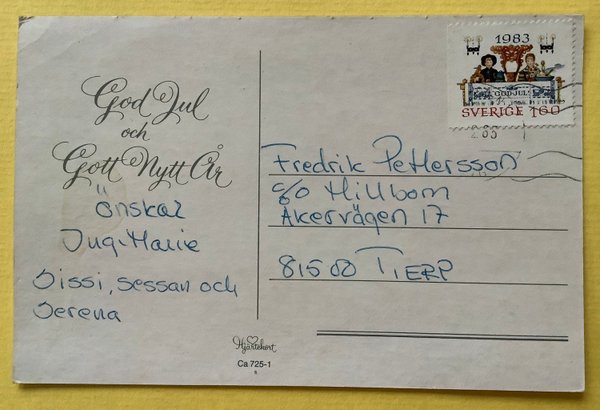 God Jul
och
Gott Nytt År
önskar
Ing-Marie
Sissi, Sessan och
Serena
Hjärtekort
Ca 725-1
1983
GOD JUL
SVERIGE 160
Fredrik Pettersson
c/o Hillbom
Åkervägen 17
815 00 TIERP